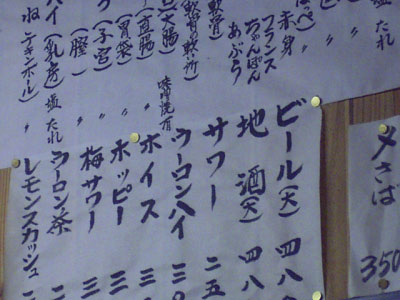 塩 たれ
赤身 〃
フランス
ちゃんぽん
あぶら
軟骨)
(大腸
(直腸)
(胃袋) 〃
(子宮) 〃
(膣) 〃
イ(乳房) 塩 たれ
〆さば 350
ビール(大) 四八
地酒(大) 四八
サワー 二五
ウーロンハイ 三〇
ホイス 三
ホッピー 三
梅サワー 三
ウーロン茶
レモンスカッシュ